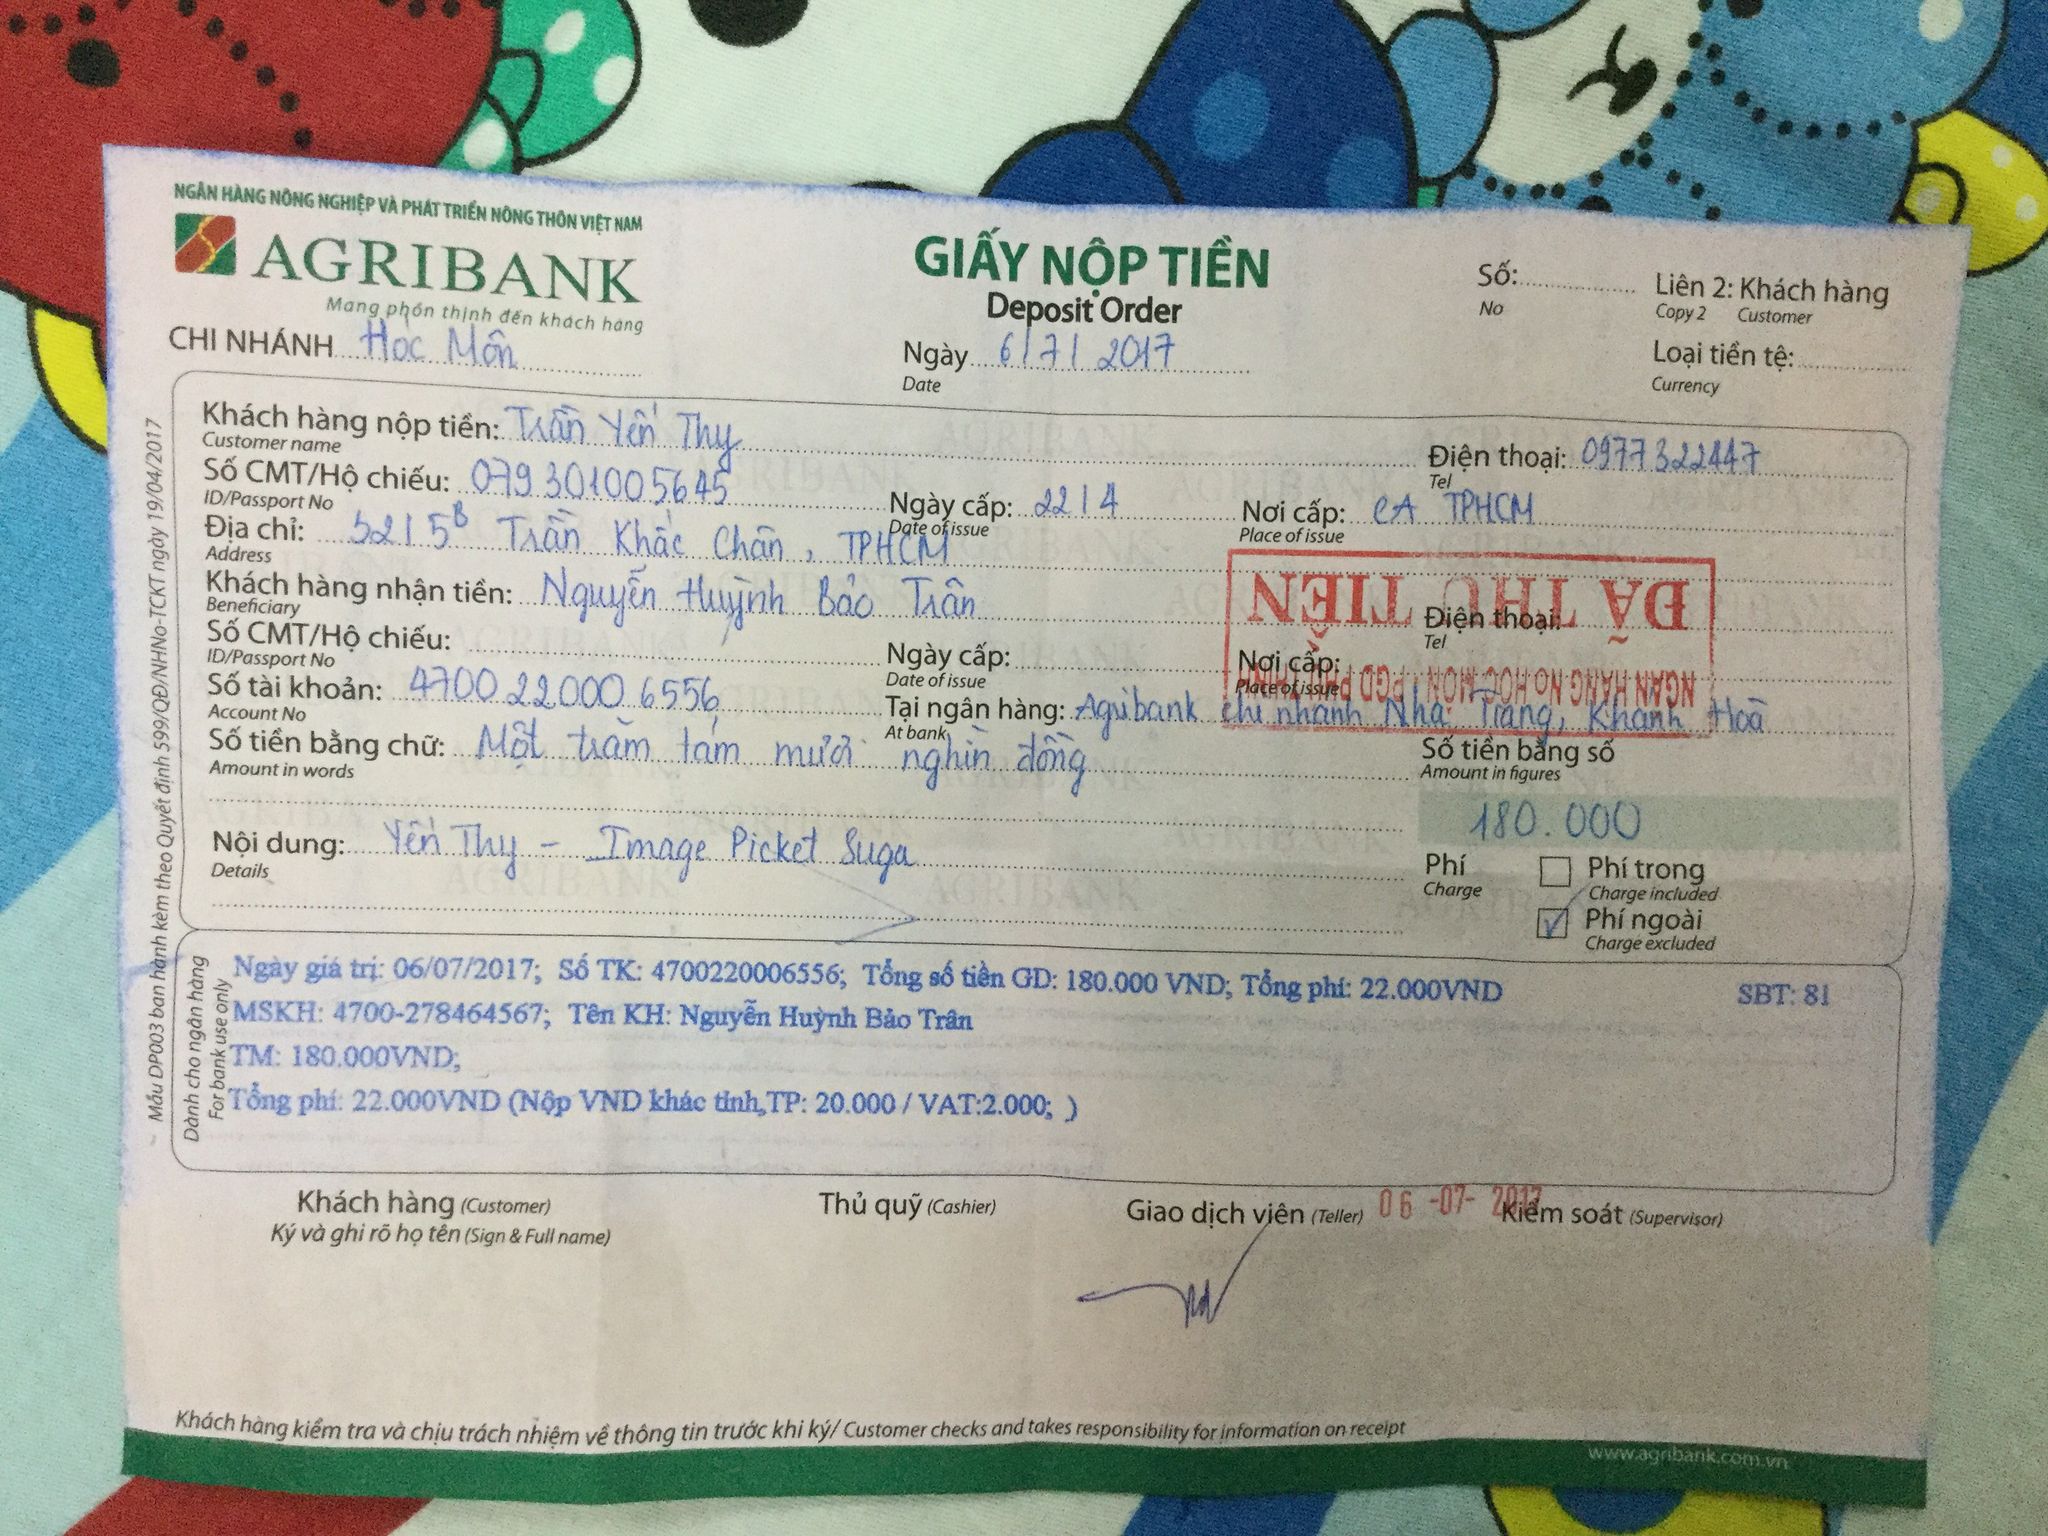 NGÂN HÀNG NÔNG NGHIỆP VÀ PHÁT TRIỂN NÔNG THÔN VIỆT NAM
AGRIBANK
Mang phồn thịnh đến khách hàng
GIẤY NỘP TIỀN
Deposit Order
Số:
No
Liên 2: Khách hàng
Copy 2 Customer
CHI NHÁNH Hóc Môn
Ngày 6/7/2017
Date
Loại tiền tệ:
Currency
Khách hàng nộp tiền: Trần Yến Thy
Customer name
Điện thoại: 0977322447
Tel
Số CMT/Hộ chiếu: 079301005645
ID/Passport No
Ngày cấp: 22/4
Date of issue
Nơi cấp: CA TPHCM
Place of issue
Địa chỉ: 521 5B Trần Khắc Chân, TPHCM
Address
Khách hàng nhận tiền: Nguyễn Huỳnh Bảo Trân
Beneficiary
Điện thoại:
Tel
ĐÃ THU TIỀN
NGÂN HÀNG No HÓC MÔN - PGD
Số CMT/Hộ chiếu:
ID/Passport No
Ngày cấp:
Date of issue
Nơi cấp:
Place of issue
Số tài khoản: 4700220006556
Account No
Tại ngân hàng: Agribank chi nhánh Nha Trang, Khánh Hoà
At bank
Số tiền bằng chữ: Một trăm tám mươi nghìn đồng
Amount in words
Số tiền bằng số
Amount in figures
180.000
Nội dung: Yến Thy - Image Picket Suga
Details
Phí
Charge
Phí trong
Charge included
Phí ngoài
Charge excluded
Mẫu DP003 ban hành kèm theo Quyết định 599/QĐ/NHNo-TCKT ngày 19/04/2017
Dành cho ngân hàng
For bank use only
Ngày giá trị: 06/07/2017; Số TK: 4700220006556; Tổng số tiền GD: 180.000 VND; Tổng phí: 22.000VND SBT: 81
MSKH: 4700-278464567; Tên KH: Nguyễn Huỳnh Bảo Trân
TM: 180.000VND;
Tổng phí: 22.000VND (Nộp VND khác tỉnh,TP: 20.000 / VAT:2.000; )
Khách hàng (Customer)
Ký và ghi rõ họ tên (Sign & Full name)
Thủ quỹ (Cashier)
Giao dịch viên (Teller)
06 -07- 2017
Kiểm soát (Supervisor)
Khách hàng kiểm tra và chịu trách nhiệm về thông tin trước khi ký/ Customer checks and takes responsibility for information on receipt
www.agribank.com.vn